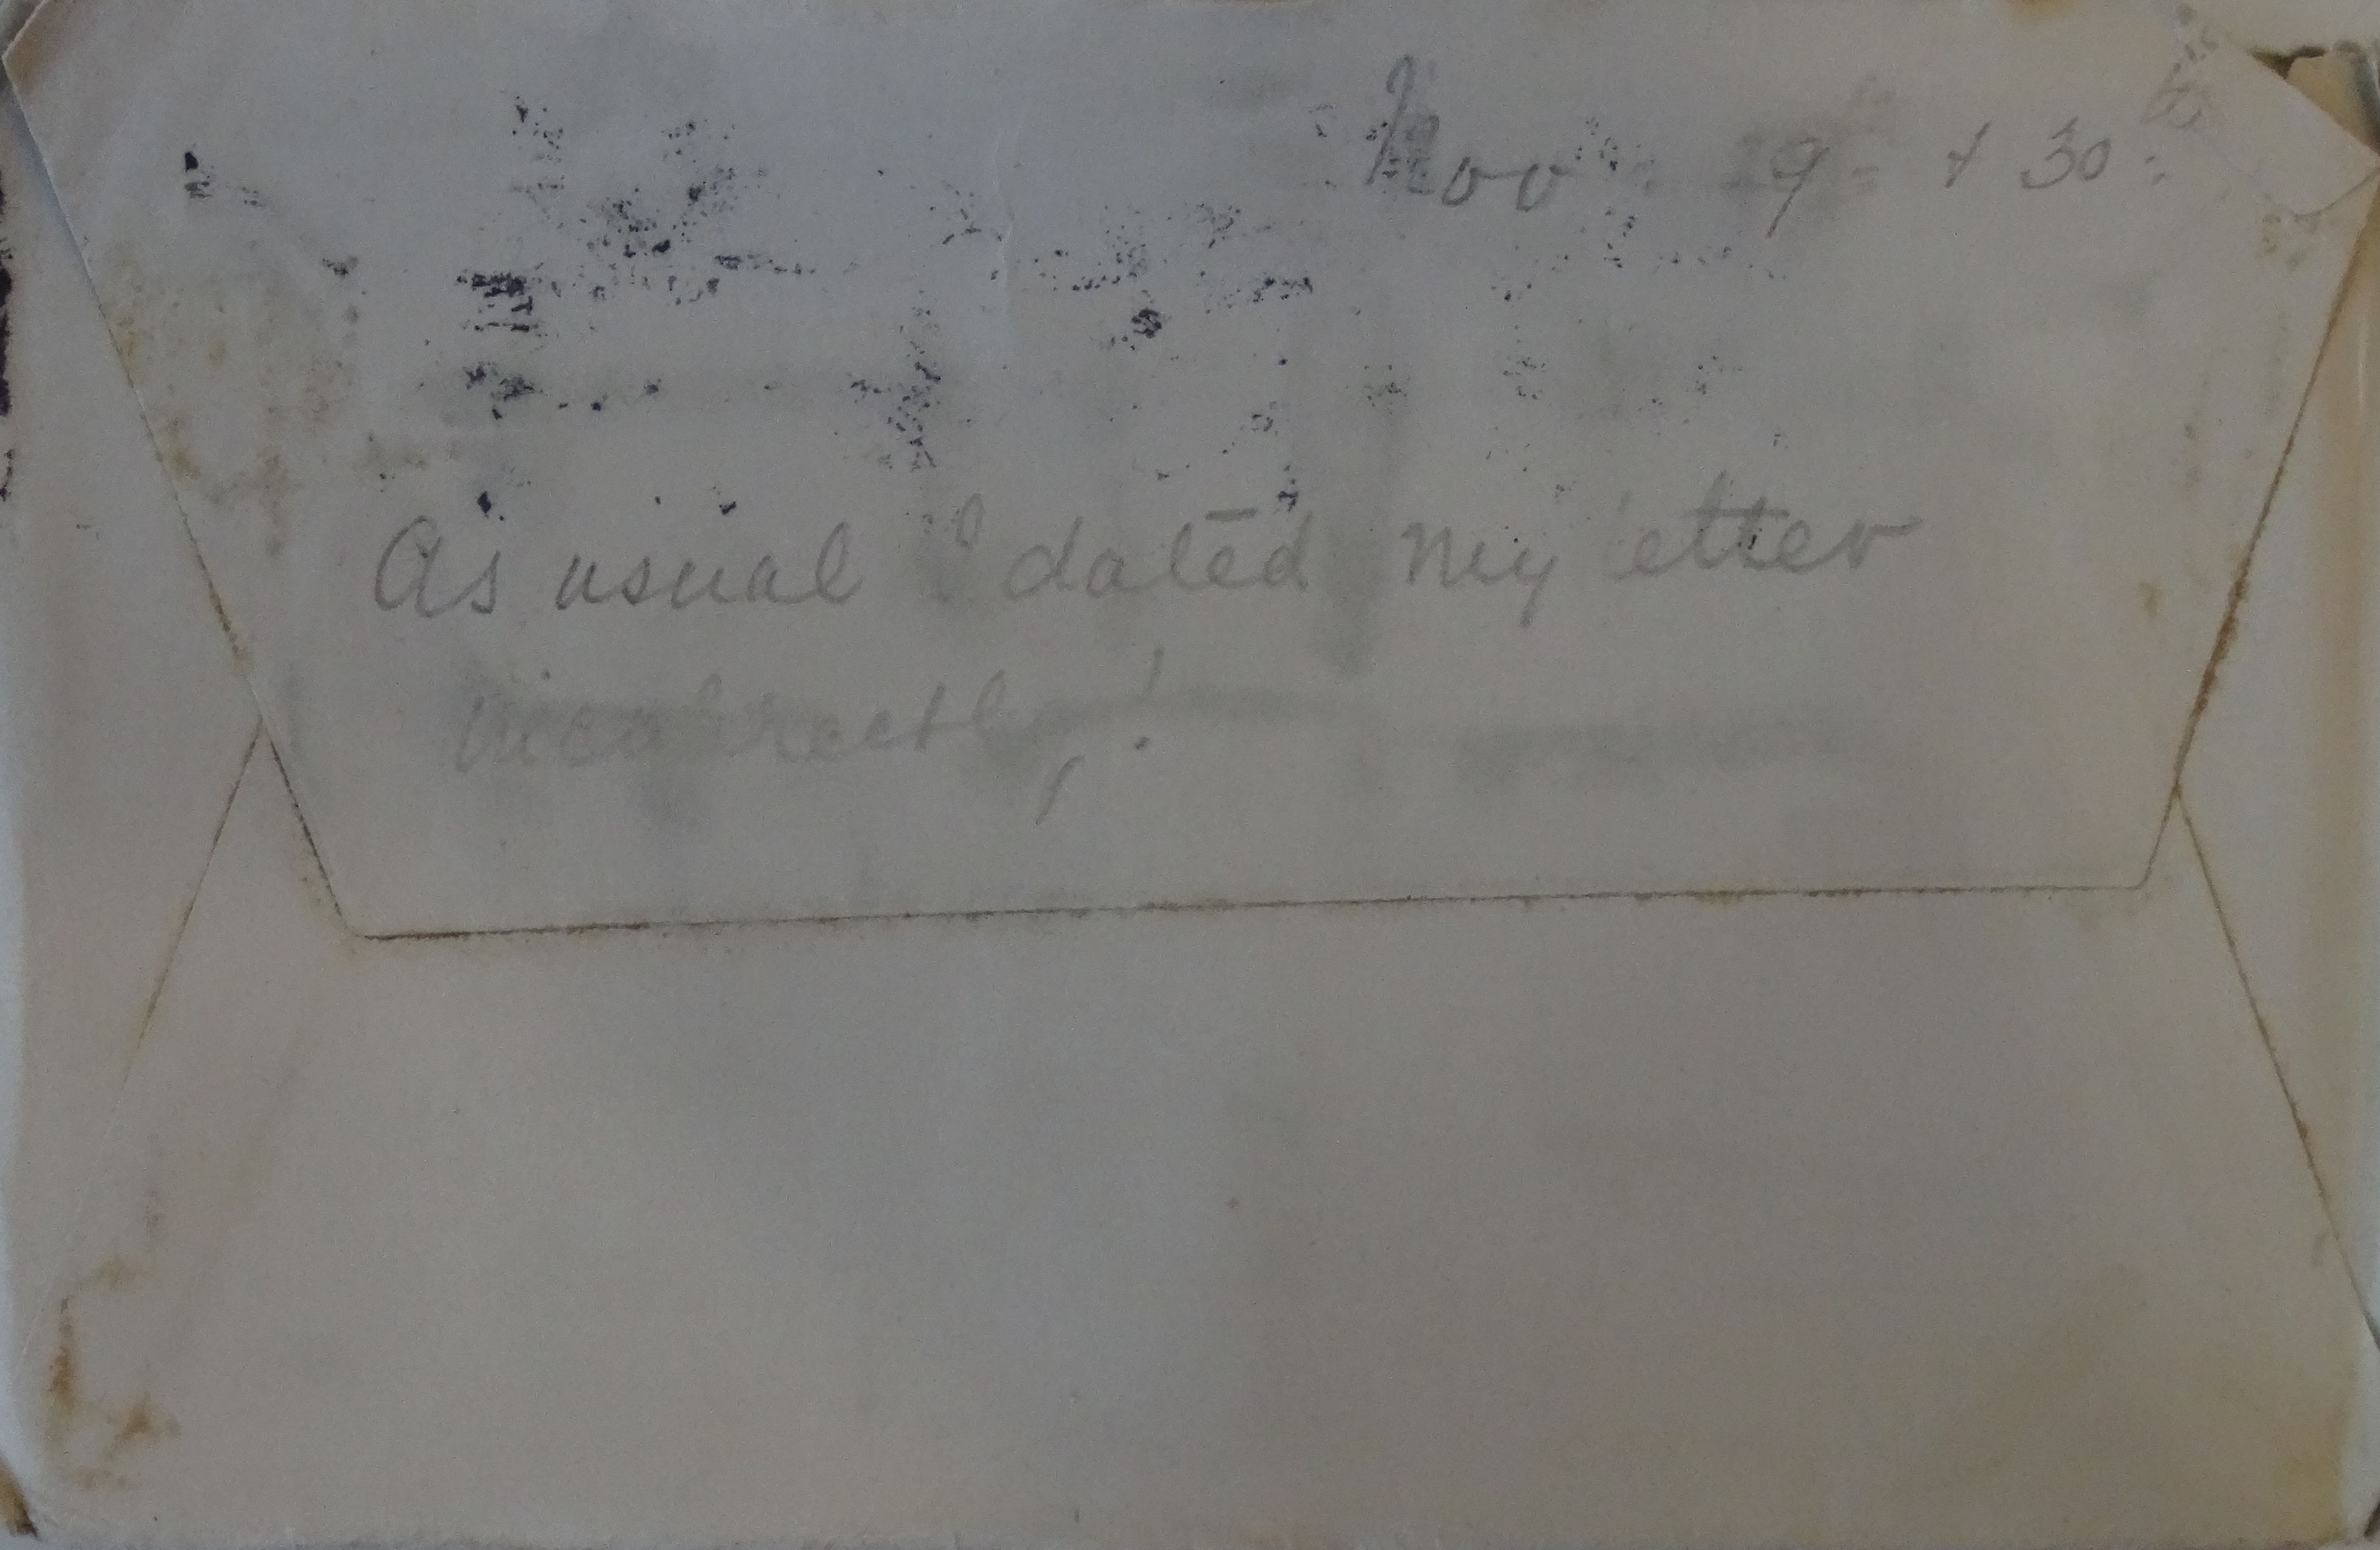 Nov 29 + 30th
As usual I dated my letter
incorrectly!